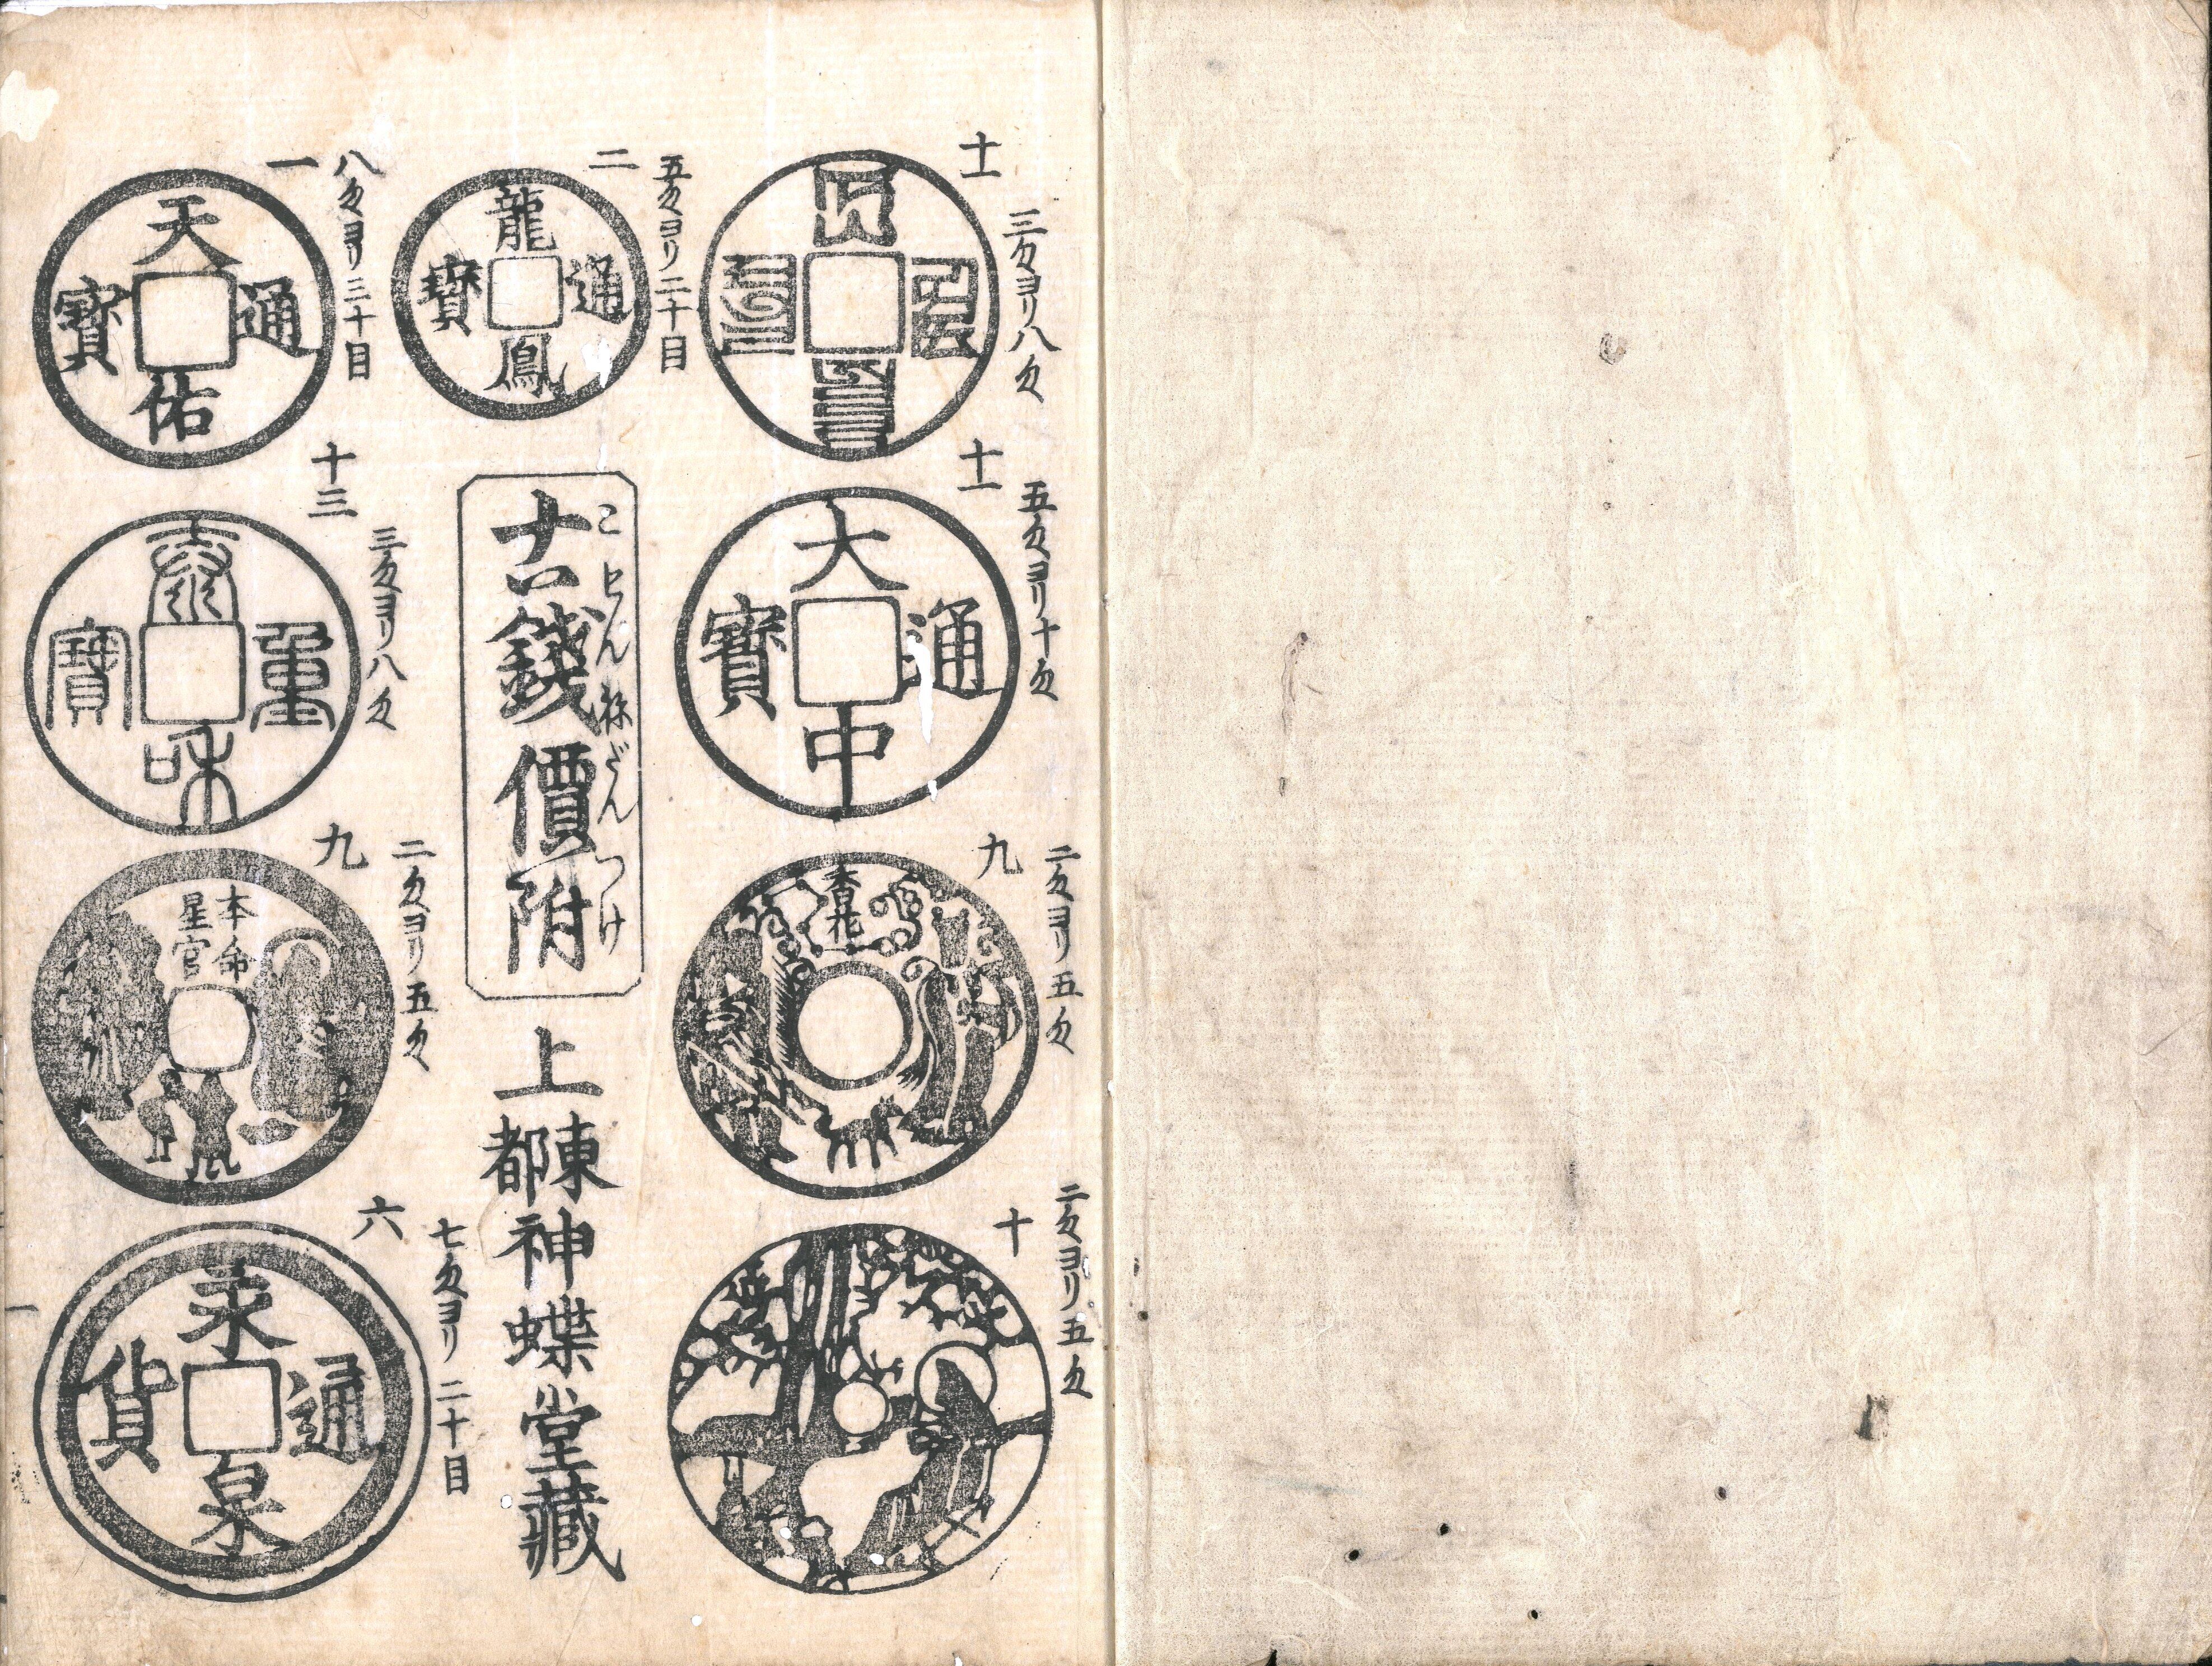 三匁ヨリ八匁
五匁ヨリ十匁
大中通寶
九
二匁ヨリ五匁
十
二匁ヨリ五匁
二
五匁ヨリ二十目
龍鳳通寶
古錢價附
こせんねだんつけ
上
東都
神蝶堂藏
一
八匁ヨリ三十目
天佑通寶
十三
三匁ヨリ八匁
泰和重寶
九
二匁ヨリ五匁
本命
星官
六
七匁ヨリ二十目
永通泉貨
一